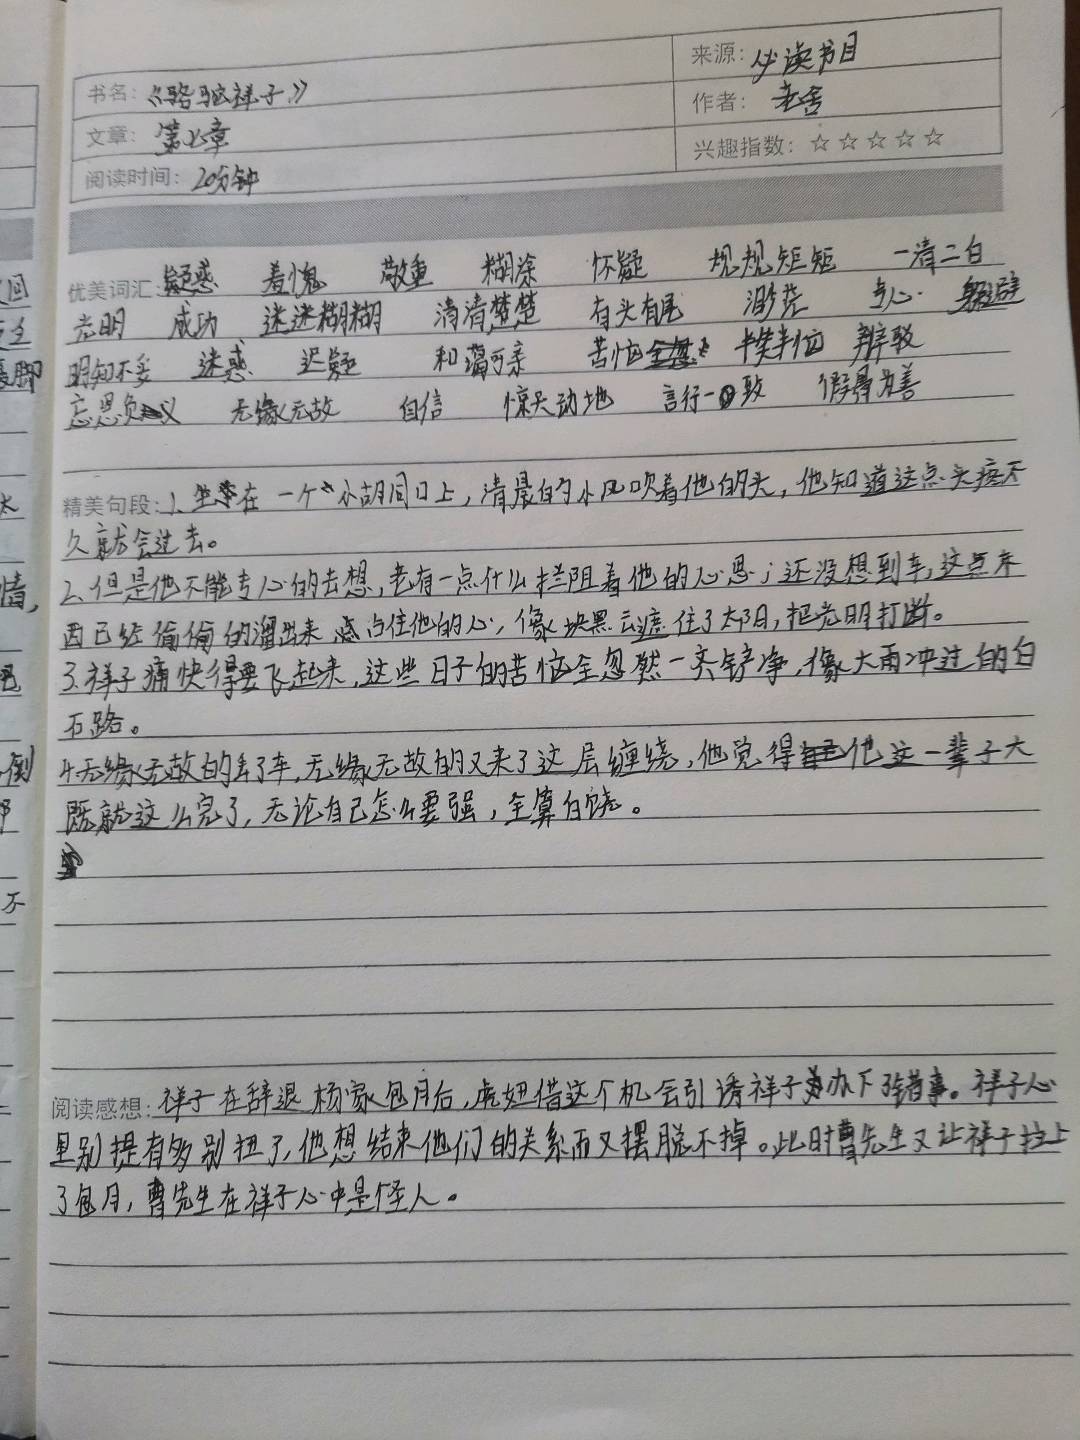 书名：《骆驼祥子》
来源：必读书目
文章：第七章
作者：老舍
阅读时间：20分钟
兴趣指数：☆☆☆☆☆
优美词汇：疑惑 羞愧 敬重 糊涂 怀疑 规规矩矩 一清二白
光明 成功 迷迷糊糊 清清楚楚 有头有尾 渺茫 专心 躲避
明知不妥 迷惑 迟疑 和蔼可亲 苦恼 辩驳
忘恩负义 无缘无故 自信 惊天动地 言行一致
精美句段：1、坐在一个小胡同口上，清晨的小风吹着他的头，他知道这点头疼不
久就会过去。
2、但是他不能专心的去想，老有一点什么拦阻着他的心思；还没想到车，这点东
西已经偷偷的溜出来占住他的心，像块黑云遮住了太阳，把光明打断。
3.祥子痛快得要飞起来，这些日子的苦恼全忽然一齐铲净，像大雨冲过的白
石路。
4.无缘无故的丢了车，无缘无故的又来了这层缠绕，他觉得他这一辈子大
既就这么完了，无论自己怎么要强，全算白饶。
阅读感想：祥子在辞退杨家包月后，虎妞借这个机会引诱祥子办下了错事。祥子心
里别提有多别扭了，他想结束他们的关系而又摆脱不掉。此时曹先生又让祥子拉上
了包月，曹先生在祥子心中是怪人。
回
脚
太
情，
倒
不